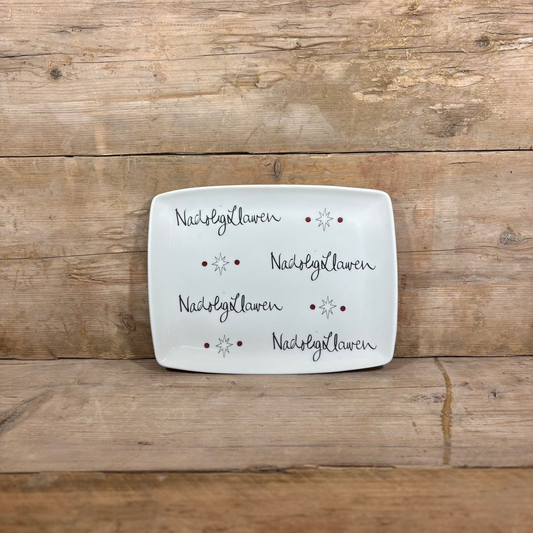 Nadolig Llawen
Nadolig Llawen
Nadolig Llawen
Nadolig Llawen